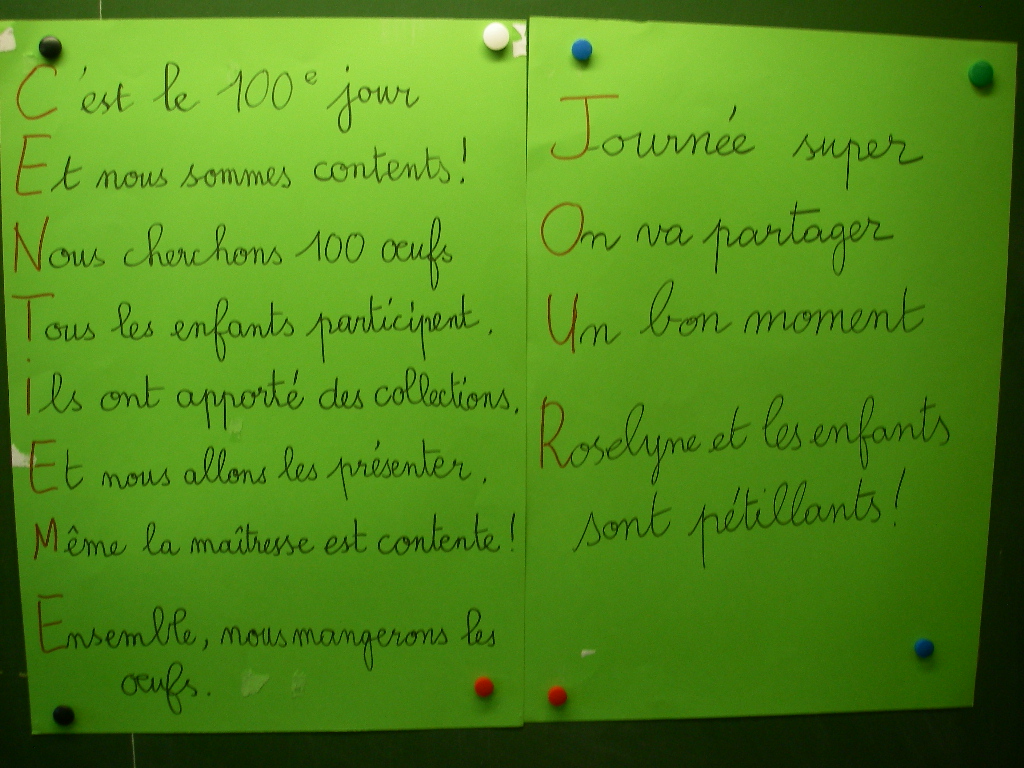 C'est le 100e jour
Et nous sommes contents!
Nous cherchons 100 œufs
Tous les enfants participent.
ils ont apporté des collections.
Et nous allons les présenter.
Même la maîtresse est contente!
Ensemble, nous mangerons les
œufs.
Journée super
On va partager
Un bon moment
Roselyne et les enfants
sont pétillants!